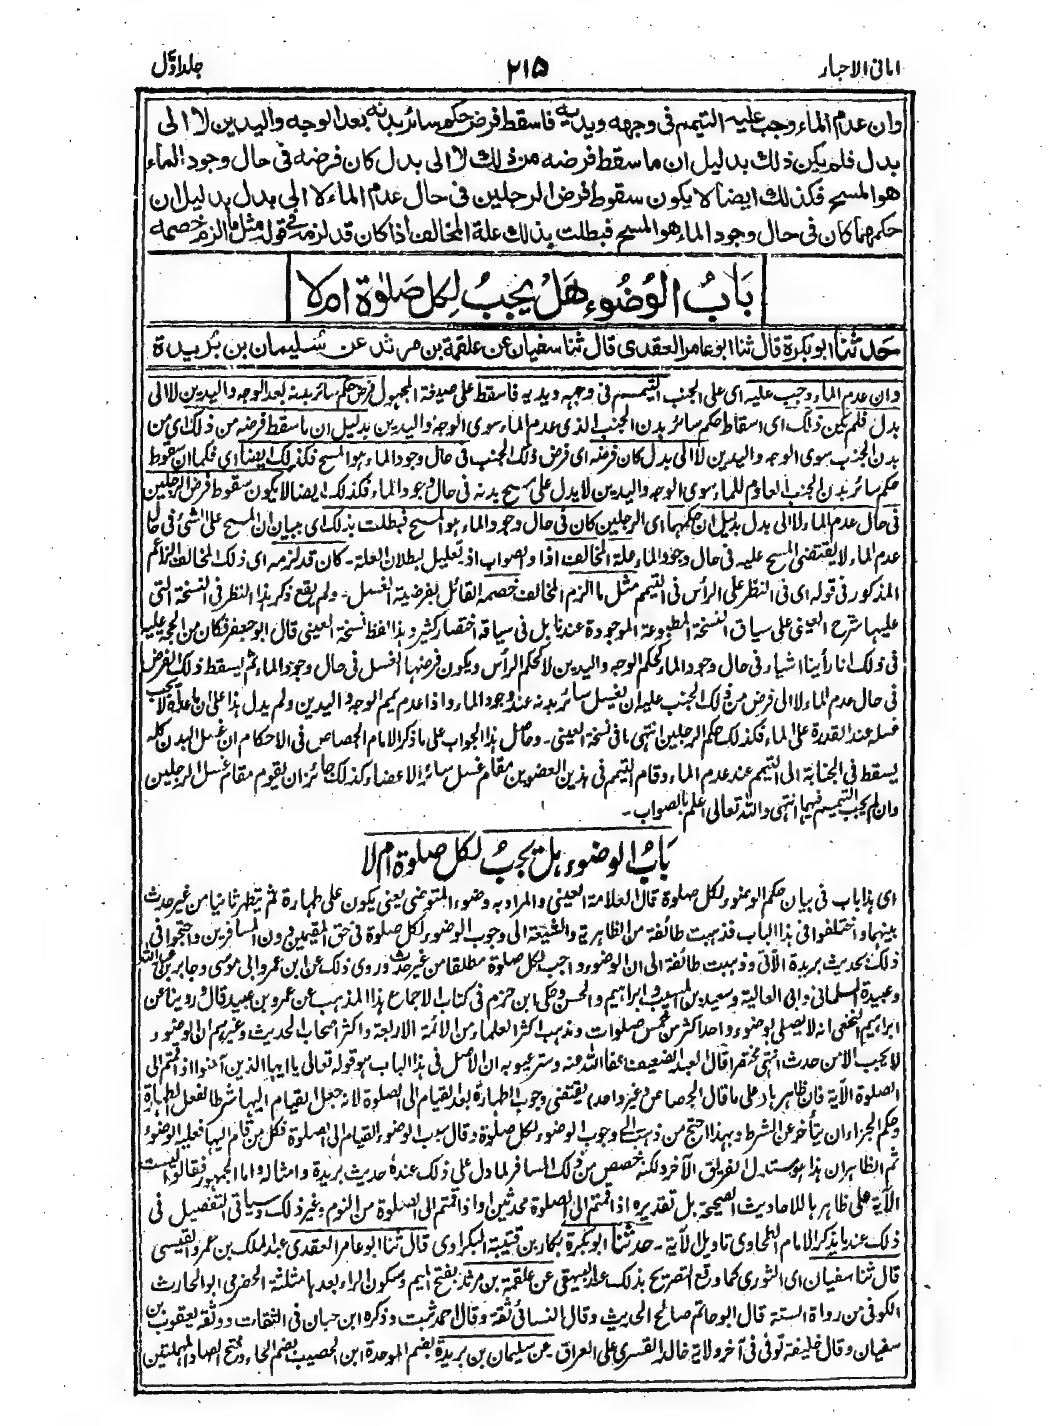 امانی الاحبار ٢١٥ جلد اوّل
وان عدم الماء وجب عليه التيمم فی وجهه ويديه فاسقط فرض حكم سائر بدنه بعد الوجه واليدين لا الى
بدل فلم يكن ذلك بدليل ان ما سقط فرضه من ذلك لا الى بدل كان فرضه فی حال وجود الماء
هو المسح فكذلك ايضا لا يكون سقوط فرض الرجلين فی حال عدم الماء لا الى بدل بدليل ان
حكمهما كان فی حال وجود الماء هو المسح فبطلت بذلك علة المخالف اذا كان قد لزمه فی قوله مثل ما الزم خصمه
بَابُ الوُضُوء هَلْ يجبُ لِكل صَلٰوة ام لا
حَدثنا ابو بكرة قال ثنا ابو عامر العقدی قال ثنا سفيان عن علقمة بن مرثد عن سُليمان بن بُريدة
وان عدم الماء وجب عليه ای على الجنب التيمم فی وجهه ويديه فاسقط على صيغة المجهول فرض حكم سائر بدنه بعد الوجه واليدين لا الى
بدل فلم يكن ذلك ای اسقاط حكم سائر بدن الجنب الذی عدم الماء سوى الوجه واليدين بدليل ان ما سقط فرضه من ذلك ای من
بدن الجنب سوى الوجه واليدين لا الى بدل كان فرضه ای فرض ذلك الجنب فی حال وجود الماء هو المسح فكذلك ايضا ای فكما ان سقوط
حكم سائر بدن الجنب العادم للماء سوى الوجه واليدين لا يدل على مسح بدنه فی حال وجود الماء فكذلك ايضا لا يكون سقوط فرض الرجلين
فی حال عدم الماء لا الى بدل بدليل ان حكمهما ای الرجلين كان فی حال وجود الماء هو المسح فبطلت بذلك ای ببيان ان المسح على شئ فی حال
عدم الماء لا يقتضی المسح عليه فی حال وجود الماء علة المخالف اذا والصواب اذ تعليل لبطلان العلة ـ كان قد لزمه ای ذلك المخالف الزاعم
المذكور فی قوله ای فی النظر على الرأس فی التيمم مثل ما الزم المخالف خصمه القائل بفرضية الغسل ـ ولم يقع ذكر هذا النظر فی النسخة التی
عليها شرح العينی على سياق النسخة المطبوعة الموجودة عندنا بل فی سياقه اختصار كثير وهذا لفظ نسخة العينی قال ابو جعفر فكان من الحجة عليه
فی ذلك انا رأينا اشياء فی حال وجود الماء حكمها حكم الوجه واليدين لا كحكم الرأس ويكون فرضها الغسل فی حال وجود الماء ثم يسقط ذلك الفرض
فی حال عدم الماء لا الى فرض من ذلك الجنب عليه ان يغسل سائر بدنه عند وجود الماء واذا عدم يمم الوجه واليدين ولم يدل هذا على ان ما عداه لا يجب
غسله عند القدرة على الماء فكذلك حكم الرجلين انتهى ما فی نسخة العينی ـ وحاصل هذا الجواب على ما ذكر الامام الجصاص فی الاحكام ان غسل البدن كله
يسقط فی الجنابة الى التيمم عند عدم الماء وقام التيمم فی هذين العضوين مقام غسل سائر الاعضاء كذلك جائز ان يقوم مقام غسل الرجلين
وان لم يجب التيمم فيهما انتهى والله تعالى اعلم بالصواب ـ
بَابُ الوضوء هل يجبُ لكل صلوة ام لا
ای هذا باب فی بيان حكم الوضوء لكل صلوة قال العلامة العينی والمراد به وضوء المتوضی يعنی يكون على طهارة ثم يتطهر ثانيا من غير حدث
بينهما واختلفوا فی هذا الباب فذهبت طائفة من الظاهرية والشيعة الى وجوب الوضوء لكل صلوة فی حق المقيمين دون المسافرين واحتجوا فی
ذلك بحديث بريدة الآتی وذهبت طائفة الى ان الوضوء واجب لكل صلوة مطلقا من غير حدث وروی ذلك عن ابن عمر وابی موسى وجابر بن عبد الله
وعبيدة السلمانی وابی العالية وسعيد بن المسيب وابراهيم والحسن وحكى ابن حزم فی كتاب الاجماع هذا المذهب عن عمرو بن عبيد قال وروينا عن
ابراهيم النخعی انه لا يصلى بوضوء واحد اكثر من خمس صلوات ومذهب اكثر العلماء من الائمة الاربعة واكثر اصحاب الحديث وغيرهم ان الوضوء
لا يجب الا من حدث انتهى مختصرا قال العبد الضعيف عفا الله عنه وستر عيوبه ان الاصل فی هذا الباب هو قوله تعالى يا ايها الذين آمنوا اذا قمتم الى
الصلوة الآية فان ظاهرها يدل على ما قال الجصاص (وغير واحد) يقتضی وجوب الطهارة بعد القيام الى الصلوة لانه جعل القيام اليها شرطا لفعل الطهارة
وحكم الجزاء ان يتأخر عن الشرط وبهذا احتج من ذهب الى وجوب الوضوء لكل صلوة وقال سبب الوضوء القيام الى الصلوة فكل من قام اليها فعليه الوضوء
ثم الظاهر ان هذا هو مستدل الفريق الآخر ولكنه خصص من ذلك المسافر لما دل على ذلك عنده حديث بريدة وامثاله واما الجمهور فقالوا ليست
الآية على ظاهرها للاحاديث الصحيحة بل تقديره اذا قمتم الى الصلوة محدثين او اذا قمتم الى الصلوة من النوم وغير ذلك وسياتی التفصيل فی
ذلك عند ما يذكر الامام الطحاوی تاويل الآية ـ حدثنا ابو بكرة بكار بن قتيبة البكراوی قال ثنا ابو عامر العقدی عبد الملك بن عمرو القيسی
قال ثنا سفيان ای الثوری كما وقع التصريح بذلك عند البيهقی عن علقمة بن مرثد بفتح الميم وسكون الراء بعدها مثلثة الحضرمی ابو الحارث
الكوفی من رواة الستة قال ابو حاتم صالح الحديث وقال النسائی ثقة وقال احمد ثبت وذكره ابن حبان فی الثقات ووثقه يعقوب بن
سفيان وقال خليفة توفی فی آخر ولاية خالد القسری على العراق ـ عن سليمان بن بريدة بضم الموحدة ابن الحصيب بضم الحاء وفتح الصاد المهملتين